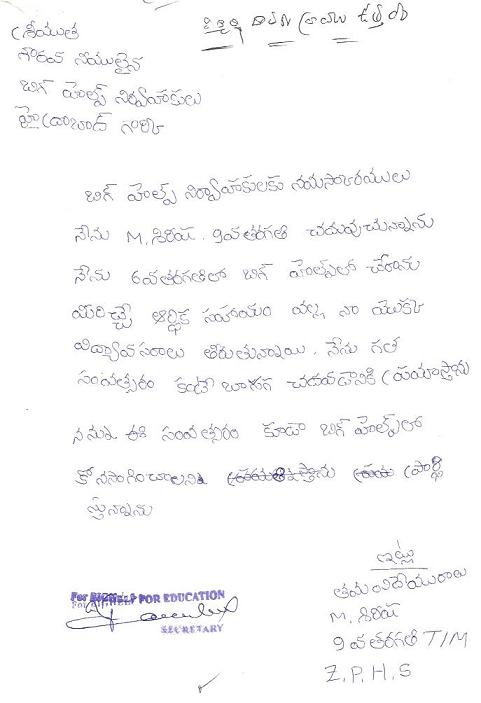 శ్రీయుత
గౌరవ నీయులైన
బిగ్ హెల్ప్ నిర్వాహకులు
హైద్రాబాద్ గారికి
బిగ్ హెల్ప్ నిర్వాహకులకు నమస్కారములు
నేను M. శిరీష. 9వతరగతి చదువుచున్నాను
నేను 6వతరగతిలో బిగ్ హెల్ప్‌లో చేరాను
మీరిచ్చే ఆర్థిక సహాయం వల్ల నా యొక్క
విద్యావసరాలు తీరుతున్నాయి. నేను గత
సంవత్సరం కంటే బాగుగ చదవడానికి ప్రయాస్తాను
నన్ను ఈ సంవత్సరం కూడా బిగ్ హెల్ప్‌లో
కొనసాగించాలని ప్రార్థి
స్తున్నాను
ఇట్లు
తమ విదేయురాలు
M. శిరీష
9వతరగతి T/M
Z.P.H.S
For BIGHELP FOR EDUCATION
SECRETARY